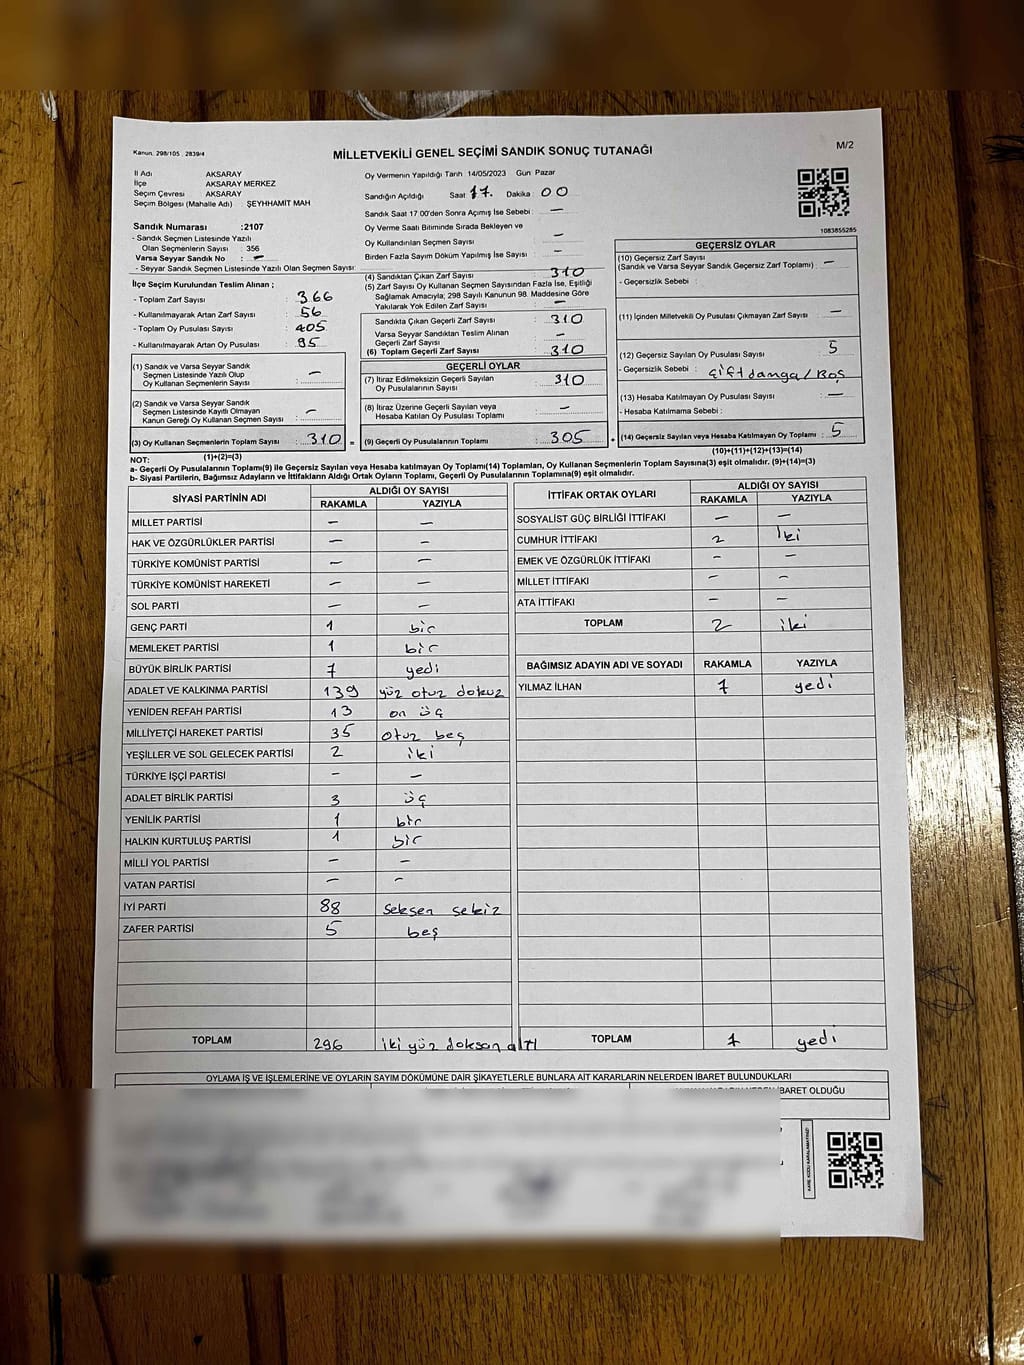 Kanun. 298/105 , 2839/4
MİLLETVEKİLİ GENEL SEÇİMİ SANDIK SONUÇ TUTANAĞI
M/2
İl Adı AKSARAY
İlçe AKSARAY MERKEZ
Seçim Çevresi AKSARAY
Seçim Bölgesi (Mahalle Adı) : ŞEYHHAMİT MAH
Oy Vermenin Yapıldığı Tarih 14/05/2023 Gün Pazar
Sandığın Açıldığı Saat 17. Dakika : 00
Sandık Saat 17 00'den Sonra Açımış İse Sebebi : —
Oy Verme Saati Bitiminde Sırada Bekleyen ve
Oy Kullandırılan Seçmen Sayısı : —
Birden Fazla Sayım Döküm Yapılmış İse Sayısı : —
1083855285
Sandık Numarası :2107
- Sandık Seçmen Listesinde Yazılı
Olan Seçmenlerin Sayısı : 356
Varsa Seyyar Sandık No : —
- Seyyar Sandık Seçmen Listesinde Yazılı Olan Seçmen Sayısı:
İlçe Seçim Kurulundan Teslim Alınan ;
- Toplam Zarf Sayısı : 366
- Kullanılmayarak Artan Zarf Sayısı : 56
- Toplam Oy Pusulası Sayısı : 405
- Kullanılmayarak Artan Oy Pusulası : 95
(1) Sandık ve Varsa Seyyar Sandık
Seçmen Listesinde Yazılı Olup
Oy Kullanan Seçmenlerin Sayısı : —
(2) Sandık ve Varsa Seyyar Sandık
Seçmen Listesinde Kayıtlı Olmayan
Kanun Gereği Oy Kullanan Seçmen Sayısı : —
(3) Oy Kullanan Seçmenlerin Toplam Sayısı : 310 =
(1)+(2)=(3)
(4) Sandıktan Çıkan Zarf Sayısı : 310
(5) Zarf Sayısı Oy Kullanan Seçmen Sayısından Fazla İse, Eşitliği
Sağlamak Amacıyla; 298 Sayılı Kanunun 98. Maddesine Göre
Yakılarak Yok Edilen Zarf Sayısı : —
Sandıkta Çıkan Geçerli Zarf Sayısı : 310
Varsa Seyyar Sandıktan Teslim Alınan
Geçerli Zarf Sayısı : —
(6) Toplam Geçerli Zarf Sayısı : 310
GEÇERLİ OYLAR
(7) İtiraz Edilmeksizin Geçerli Sayılan
Oy Pusulalarının Sayısı : 310
(8) İtiraz Üzerine Geçerli Sayılan veya
Hesaba Katılan Oy Pusulası Toplamı : —
(9) Geçerli Oy Pusulalarının Toplamı : 305 +
GEÇERSİZ OYLAR
(10) Geçersiz Zarf Sayısı
(Sandık ve Varsa Seyyar Sandık Geçersiz Zarf Toplamı) : —
- Geçersizlik Sebebi :
(11) İçinden Milletvekili Oy Pusulası Çıkmayan Zarf Sayısı : —
(12) Geçersiz Sayılan Oy Pusulası Sayısı : 5
- Geçersizlik Sebebi : Çift damga/Boş
(13) Hesaba Katılmayan Oy Pusulası Sayısı : —
- Hesaba Katılmama Sebebi :
(14) Geçersiz Sayılan veya Hesaba Katılmayan Oy Toplamı : 5
(10)+(11)+(12)+(13)=(14)
NOT:
a- Geçerli Oy Pusulalarının Toplamı(9) ile Geçersiz Sayılan veya Hesaba katılmayan Oy Toplamı(14) Toplamları, Oy Kullanan Seçmenlerin Toplam Sayısına(3) eşit olmalıdır. (9)+(14)=(3)
b- Siyasi Partilerin, Bağımsız Adayların ve İttifakların Aldığı Ortak Oyların Toplamı, Geçerli Oy Pusulalarının Toplamına(9) eşit olmalıdır.
SİYASİ PARTİNİN ADI ALDIĞI OY SAYISI
RAKAMLA YAZIYLA
MİLLET PARTİSİ — —
HAK VE ÖZGÜRLÜKLER PARTİSİ — —
TÜRKİYE KOMÜNİST PARTİSİ — —
TÜRKİYE KOMÜNİST HAREKETİ — —
SOL PARTİ — —
GENÇ PARTİ 1 bir
MEMLEKET PARTİSİ 1 bir
BÜYÜK BİRLİK PARTİSİ 7 yedi
ADALET VE KALKINMA PARTİSİ 139 yüz otuz dokuz
YENİDEN REFAH PARTİSİ 13 on üç
MİLLİYETÇİ HAREKET PARTİSİ 35 otuz beş
YEŞİLLER VE SOL GELECEK PARTİSİ 2 iki
TÜRKİYE İŞÇİ PARTİSİ — —
ADALET BİRLİK PARTİSİ 3 üç
YENİLİK PARTİSİ 1 bir
HALKIN KURTULUŞ PARTİSİ 1 bir
MİLLİ YOL PARTİSİ — —
VATAN PARTİSİ — —
İYİ PARTİ 88 seksen sekiz
ZAFER PARTİSİ 5 beş
TOPLAM 296 iki yüz doksan altı
İTTİFAK ORTAK OYLARI ALDIĞI OY SAYISI
RAKAMLA YAZIYLA
SOSYALİST GÜÇ BİRLİĞİ İTTİFAKI — —
CUMHUR İTTİFAKI 2 iki
EMEK VE ÖZGÜRLÜK İTTİFAKI — —
MİLLET İTTİFAKI — —
ATA İTTİFAKI — —
TOPLAM 2 iki
BAĞIMSIZ ADAYIN ADI VE SOYADI RAKAMLA YAZIYLA
YILMAZ İLHAN 7 yedi
TOPLAM 7 yedi
OYLAMA İŞ VE İŞLEMLERİNE VE OYLARIN SAYIM DÖKÜMÜNE DAİR ŞİKAYETLERLE BUNLARA AİT KARARLARIN NELERDEN İBARET BULUNDUKLARI
İBARET OLDUĞU
KARE KODU KARALAMAYINIZ!